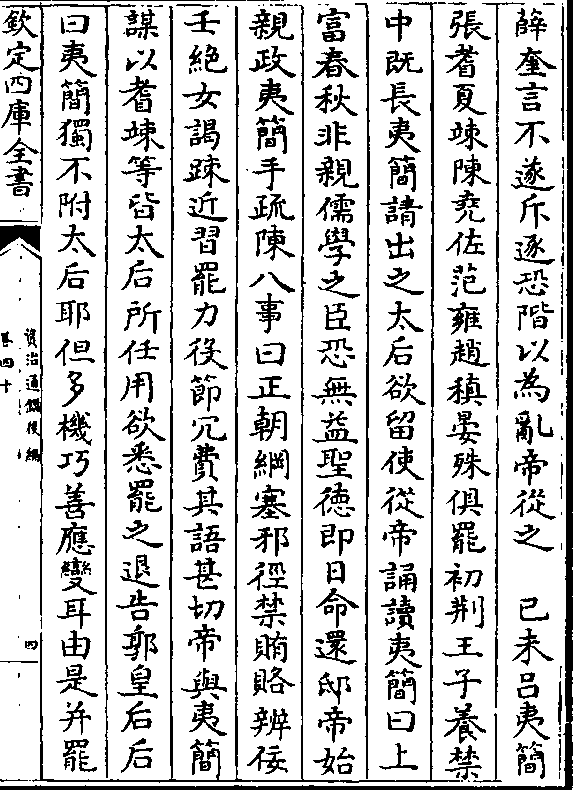 薛奎言不遂斥逐恐階以為亂帝從之　已未吕夷簡
張耆夏竦陳堯佐范雍趙稹晏殊俱罷初荆王子養禁
中既長夷簡請出之太后欲留使從帝誦讀夷簡曰上
富春秋非親儒學之臣恐無益聖徳即日命還邸帝始
親政夷簡手疏陳八事曰正朝綱塞邪徑禁賄賂辨佞
壬絶女謁踈近習罷力役節冗費其語甚切帝與夷簡
謀以耆竦等皆太后所任用欲悉罷之退告郭皇后后
曰夷簡獨不附太后耶但多機巧善應變耳由是并罷
欽定四庫全書
資治通鑑後編
卷四十
四